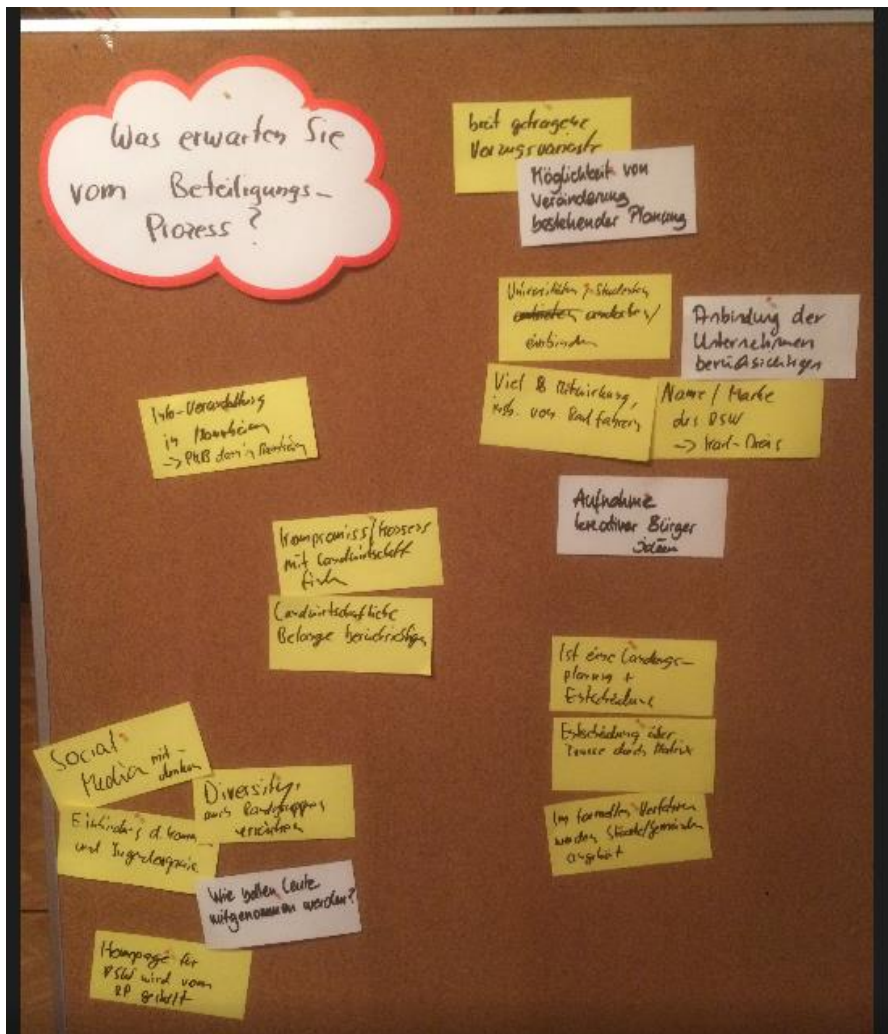 Was erwarten Sie
vom Beteiligungs-
Prozess?
breit getragene
Vorzugsvariante
Möglichkeit von
Veränderung
bestehender Planung
Universitäten, Studenten
einbinden
Anbindung der
Unternehmen
berücksichtigen
Viel B Mitwirkung,
insb. von Radfahrern
Name / Marke
des RSW
-> Karl-Drais
Info-Veranstaltung
in Mannheim
Aufnahme
kreativer Bürger
ideen
Kompromiss/Konsens
mit Landwirtschaft
finden
Landwirtschaftliche
Belange berücksichtigen
Ist eine Landungs-
planung +
Entscheidung
Entscheidung über
Trasse durch Matrix
Im formellen Verfahren
werden Städte/Gemeinden
angehört
Social
Media mit-
denken
Diversity,
auch Randgruppen
erreichen
Einbindung d. Komm.
und Jugendgruppe
Wie sollen Leute
mitgenommen werden?
Homepage für
RSW wird vom
RP gestellt